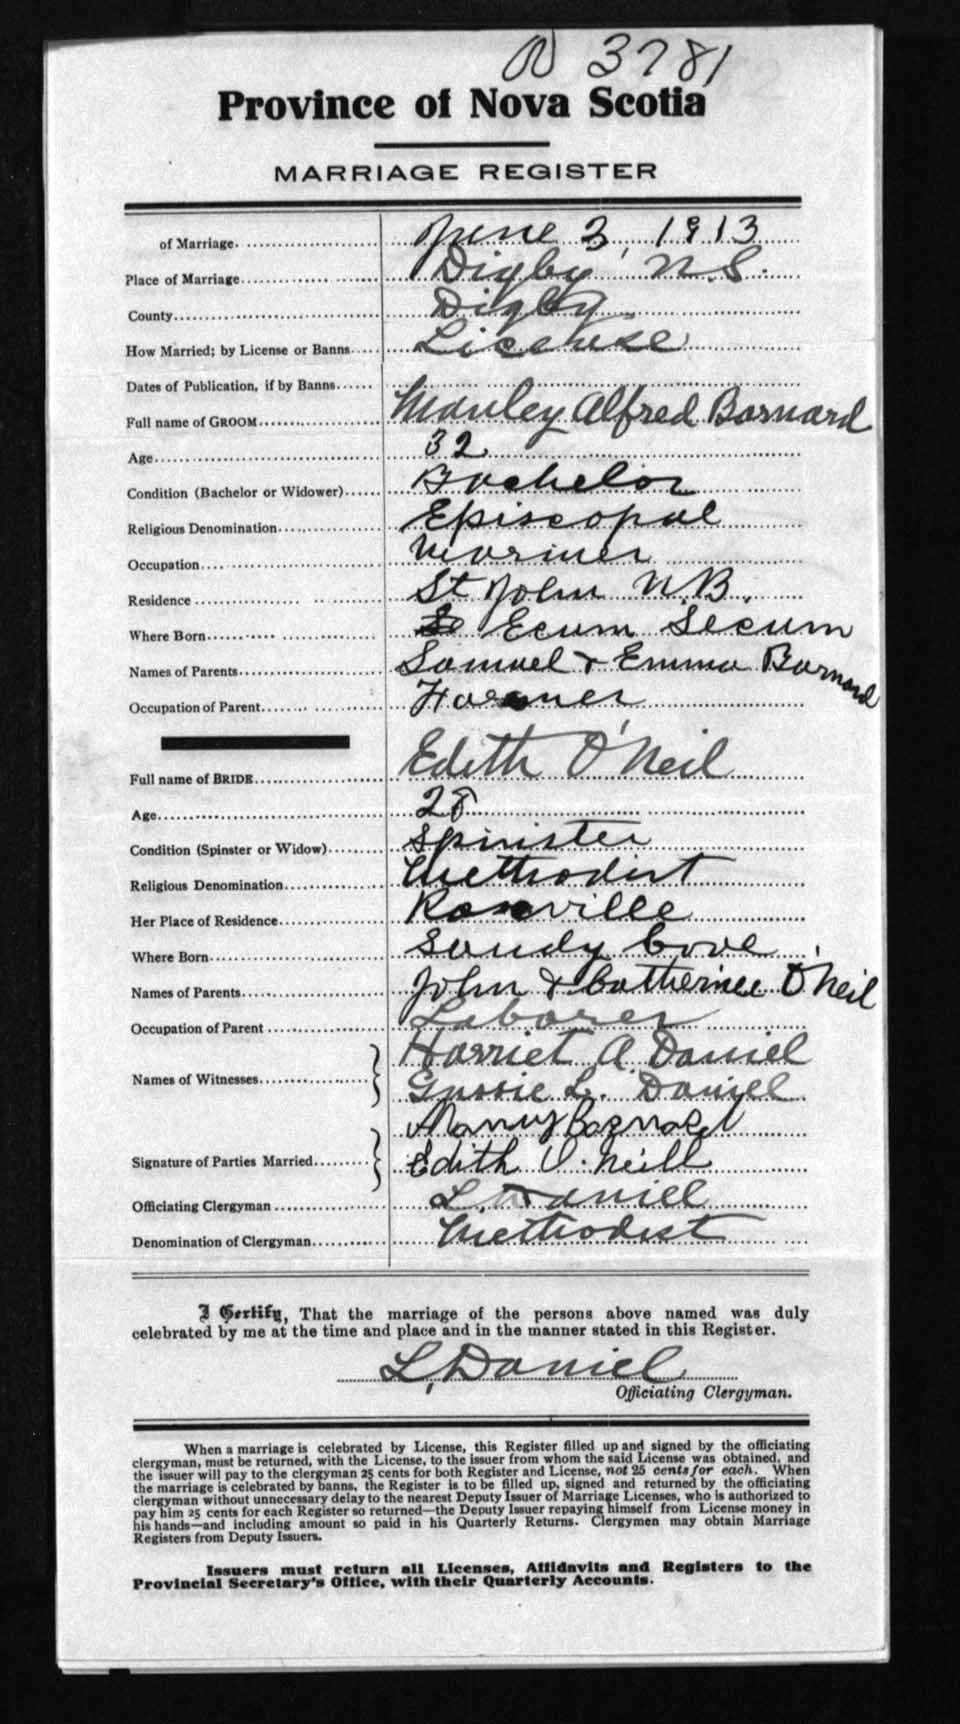 3781
Province of Nova Scotia
MARRIAGE REGISTER
of Marriage June 3, 1913
Place of Marriage Digby, N.S.
County Digby
How Married; by License or Banns License
Dates of Publication, if by Banns
Full name of GROOM Manley Alfred Barnard
Age 32
Condition (Bachelor or Widower) Bachelor
Religious Denomination Episcopal
Occupation Mariner
Residence St John N.B.
Where Born Ecum Secum
Names of Parents Samuel & Emma Barnard
Occupation of Parent Farmer
Full name of BRIDE Edith O'Neil
Age 28
Condition (Spinster or Widow) Spinister
Religious Denomination Methodist
Her Place of Residence Rossville
Where Born Sandy Cove
Names of Parents John & Catherinee O'Neil
Occupation of Parent Laborer
Names of Witnesses Harriet A. Daniel
Gussie L. Daniel
Barnard
Signature of Parties Married Edith O. Neill
Officiating Clergyman L. Daniel
Denomination of Clergyman Methodist
I Certify, That the marriage of the persons above named was duly
celebrated by me at the time and place and in the manner stated in this Register.
L, Daniel
Officiating Clergyman.
When a marriage is celebrated by License, this Register filled up and signed by the officiating
clergyman, must be returned, with the License, to the issuer from whom the said License was obtained, and
the issuer will pay to the clergyman 25 cents for both Register and License, not 25 cents for each. When
the marriage is celebrated by banns, the Register is to be filled up, signed and returned by the officiating
clergyman without unnecessary delay to the nearest Deputy Issuer of Marriage Licenses, who is authorized to
pay him 25 cents for each Register so returned—the Deputy Issuer repaying himself from License money in
his hands—and including amount so paid in his Quarterly Returns. Clergymen may obtain Marriage
Registers from Deputy Issuers.
Issuers must return all Licenses, Affidavits and Registers to the
Provincial Secretary's Office, with their Quarterly Accounts.